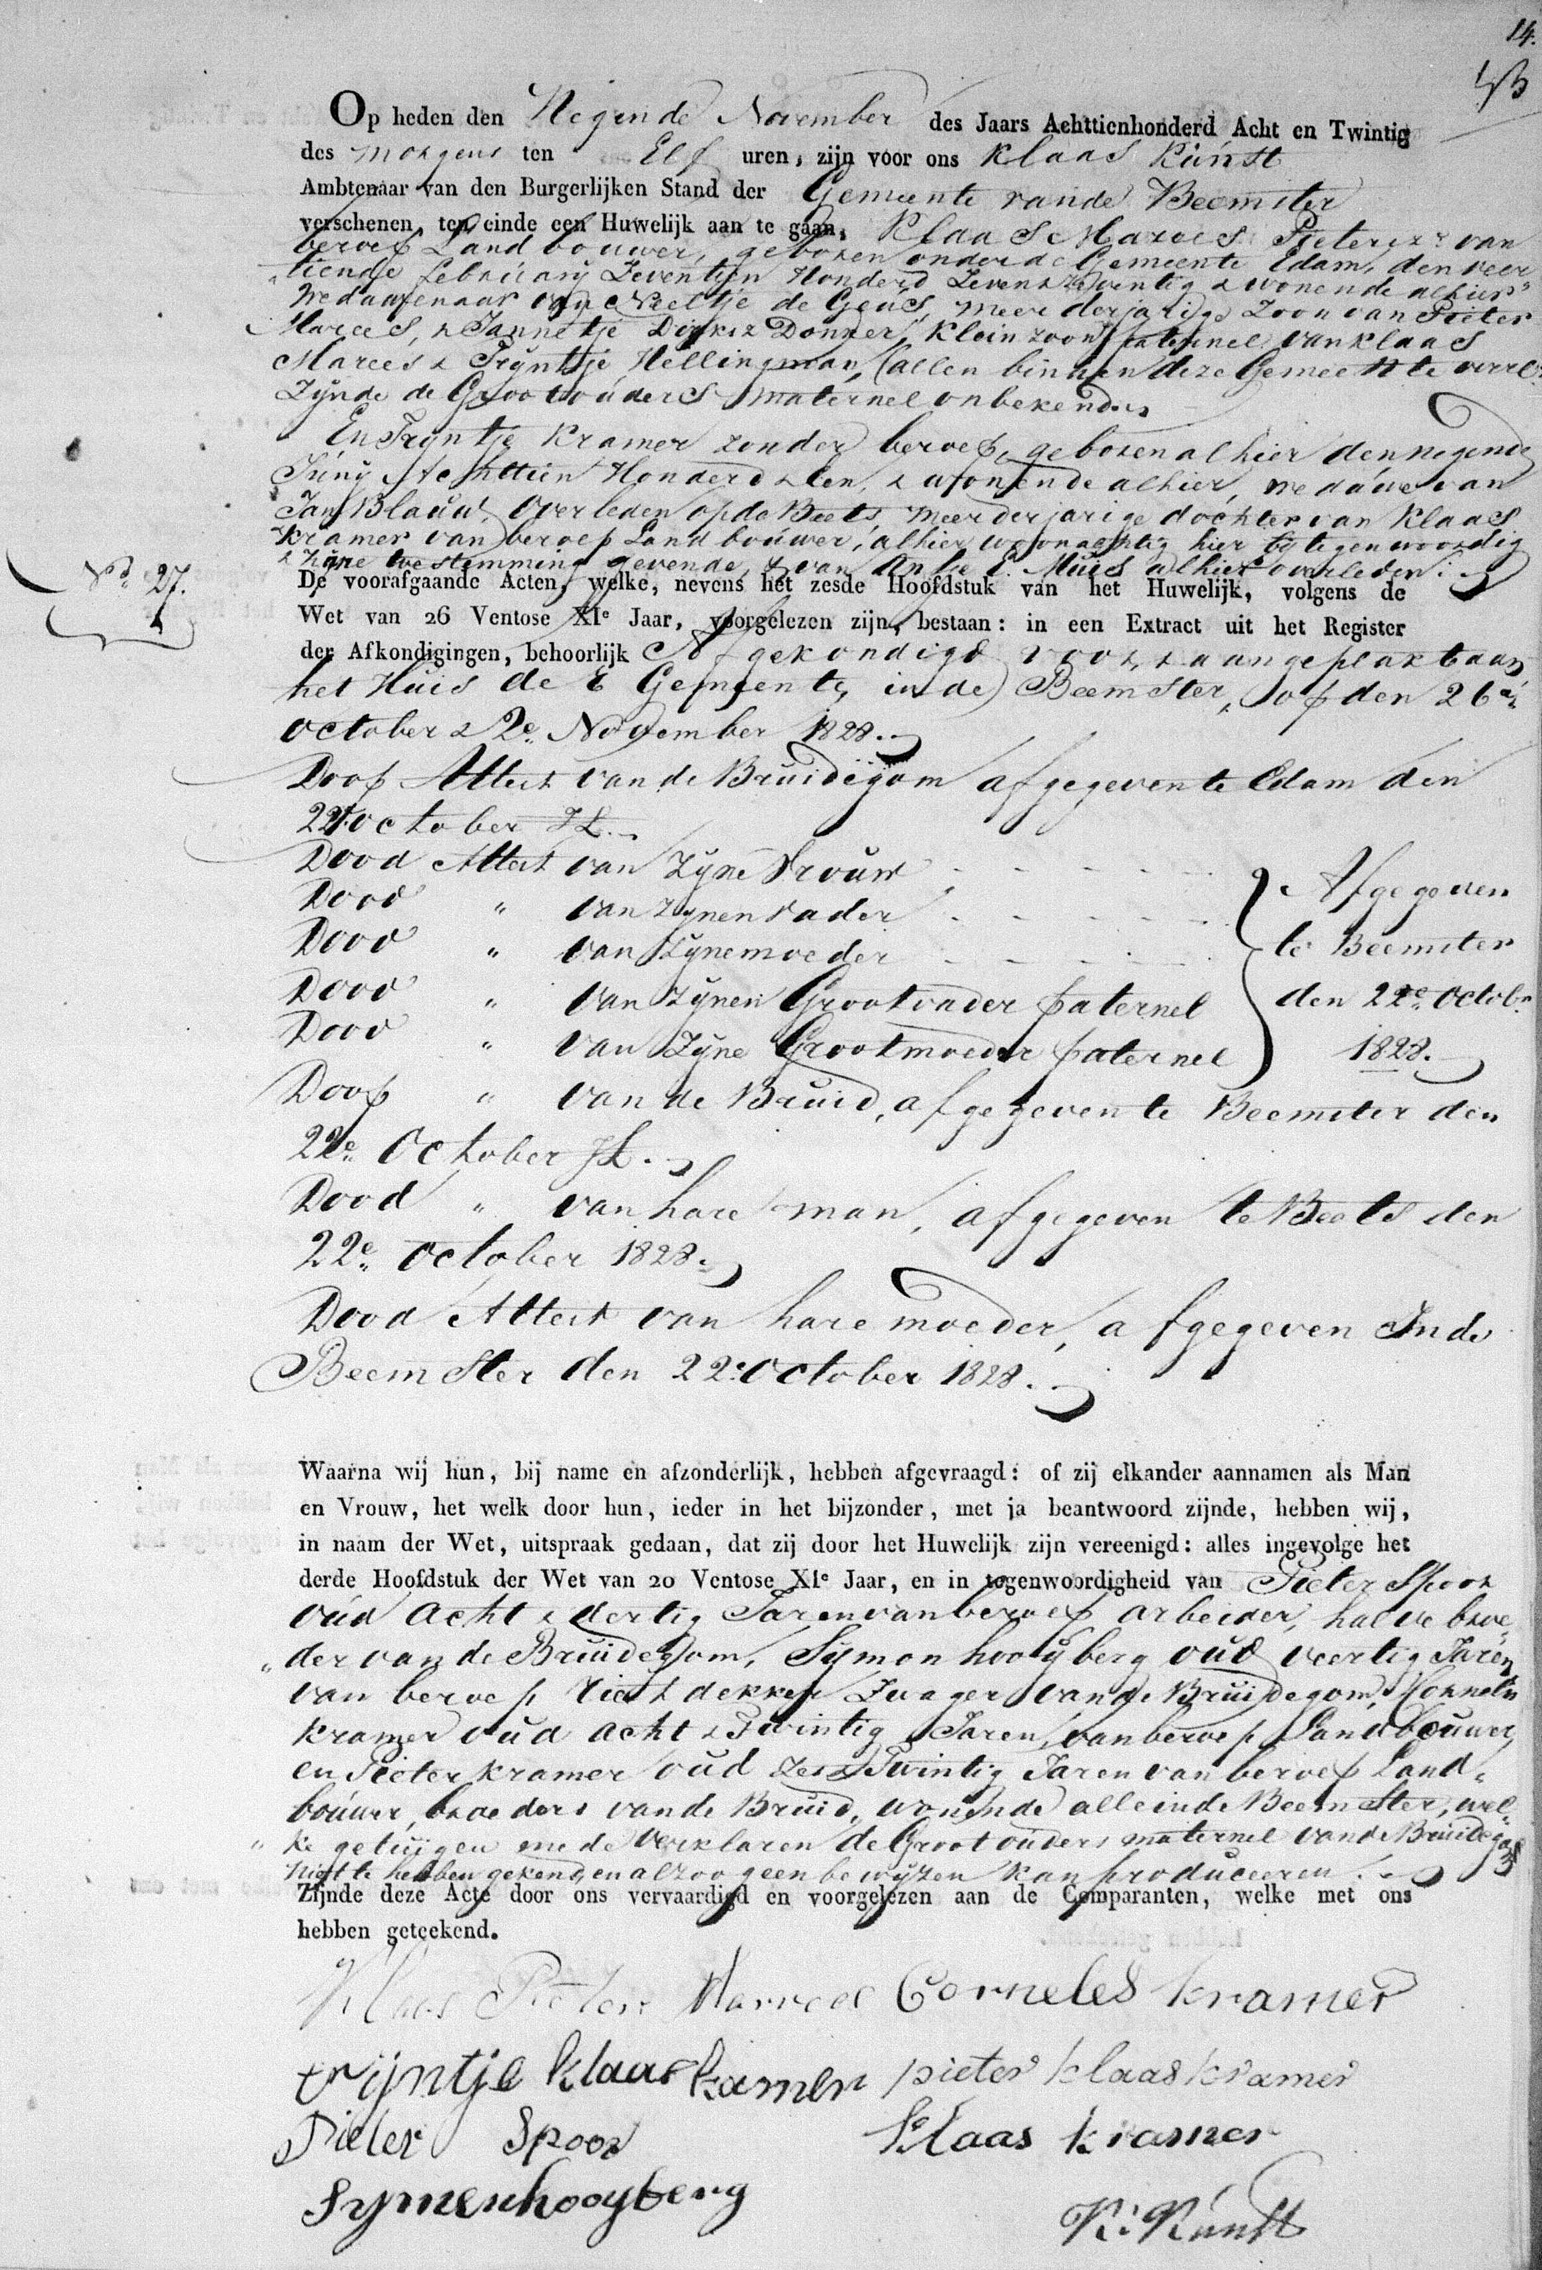 14.
Op heden den Negende November des Jaars Achttienhonderd Acht en Twintig
des morgens ten Elf uren, zijn voor ons Klaas Kúnst
Ambtenaar van den Burgerlijken Stand der Gemeente van de Beemster
verschenen, ten einde een Huwelijk aan te gaan, Klaas Marees Pietersz: van
beroep Land bouwer, geboren onder de Gemeente Edam, den veer
tiende februarij Zeventijn Honderd Zeven & Twintig & wonende alhier
Wedúwenaar van Neeltje de Geus, meerderjarige Zoon van Pieter
Marees, & Jannetje Dirksz Donker, Klein zoon paternel van Klaas
Marees & Trijntje Hellingman, (allen binnen deze Gemeente overl:
Zijnde de Grootoúders maternel onbekend.
En Trijntje Kramer zonder beroep, geboren alhier den negende
Júnij Achttien Honderd & Een, & wonende alhier, wedúwe van
Jan Blaúw, Overleden op de Beets, meerderjarige dochter van Klaas
Kramer van beroep Land boúwer, alhier woonachtig hier bij tegenwoordig
& Zijne toestemming gevende, & van Antje C: Múes alhier overleden.
No. 27.
De voorafgaande Acten, welke, nevens het zesde Hoofdstuk van het Huwelijk, volgens de
Wet van 26 Ventose XIe Jaar, voorgelezen zijn, bestaan: in een Extract uit het Register
der Afkondigingen, behoorlijk Afgekondigd voor, & aangeplakt aan
het Húis de Gemeente, in de Beemster, op den 26e
october & 2e November 1828.
Doop Attest van de Bruidegom afgegeven te Edam den
22e october JL.
Dood Attest van Zijne Vrouw
Dood " van zijnen vader
Dood " van Zijne moeder
Dood " van Zijnen Grootvader paternel
Dood " van Zijne Grootmoeder paternel
Afgegeven
te Beemster
den 22e octobr
1828.
Doop " van de Bruid, afgegeven te Beemster den
22e October JL.
Dood " van hare man, afgegeven te Beets den
22e october 1828.
Dood Attest van hare moeder, afgegeven In de
Beemster den 22e October 1828.
Waarna wij hun, bij name en afzonderlijk, hebben afgevraagd: of zij elkander aannamen als Man
en Vrouw, het welk door hun, ieder in het bijzonder, met ja beantwoord zijnde, hebben wij,
in naam der Wet, uitspraak gedaan, dat zij door het Huwelijk zijn vereenigd: alles ingevolge het
derde Hoofdstuk der Wet van 20 Ventose XIe Jaar, en in tegenwoordigheid van Pieter Spoor
oúd Acht & dertig Jaren van beroep arbeider, halve broe
der van de Bruidegom, Sijmon hooijberg oud veertig Jaren
van beroep Riet dekker Zwager van de Bruidegom, Kornelis
Kramer oud acht & Twintig Jaren, van beroep Landbouwer,
en Pieter Kramer oud zes & Twintig Jaren van beroep Land-
boúwer, broeders van de Bruid, wonende alle in de Beemster, wel-
ke getuijgen mede verklaren de Grootoúders maternel van de Bruidegom
niet te hebben gekend, en alzoo geen bewijzen kan produceeren.
Zijnde deze Acte door ons vervaardigd en voorgelezen aan de Comparanten, welke met ons
hebben geteekend.
Klaas Pieters Marrees Corneles Kramer
trijntje klaas kramer pieter klaas kramer
Pieter Spoor Klaas kramer
Symen hooyberg
K: Kunst